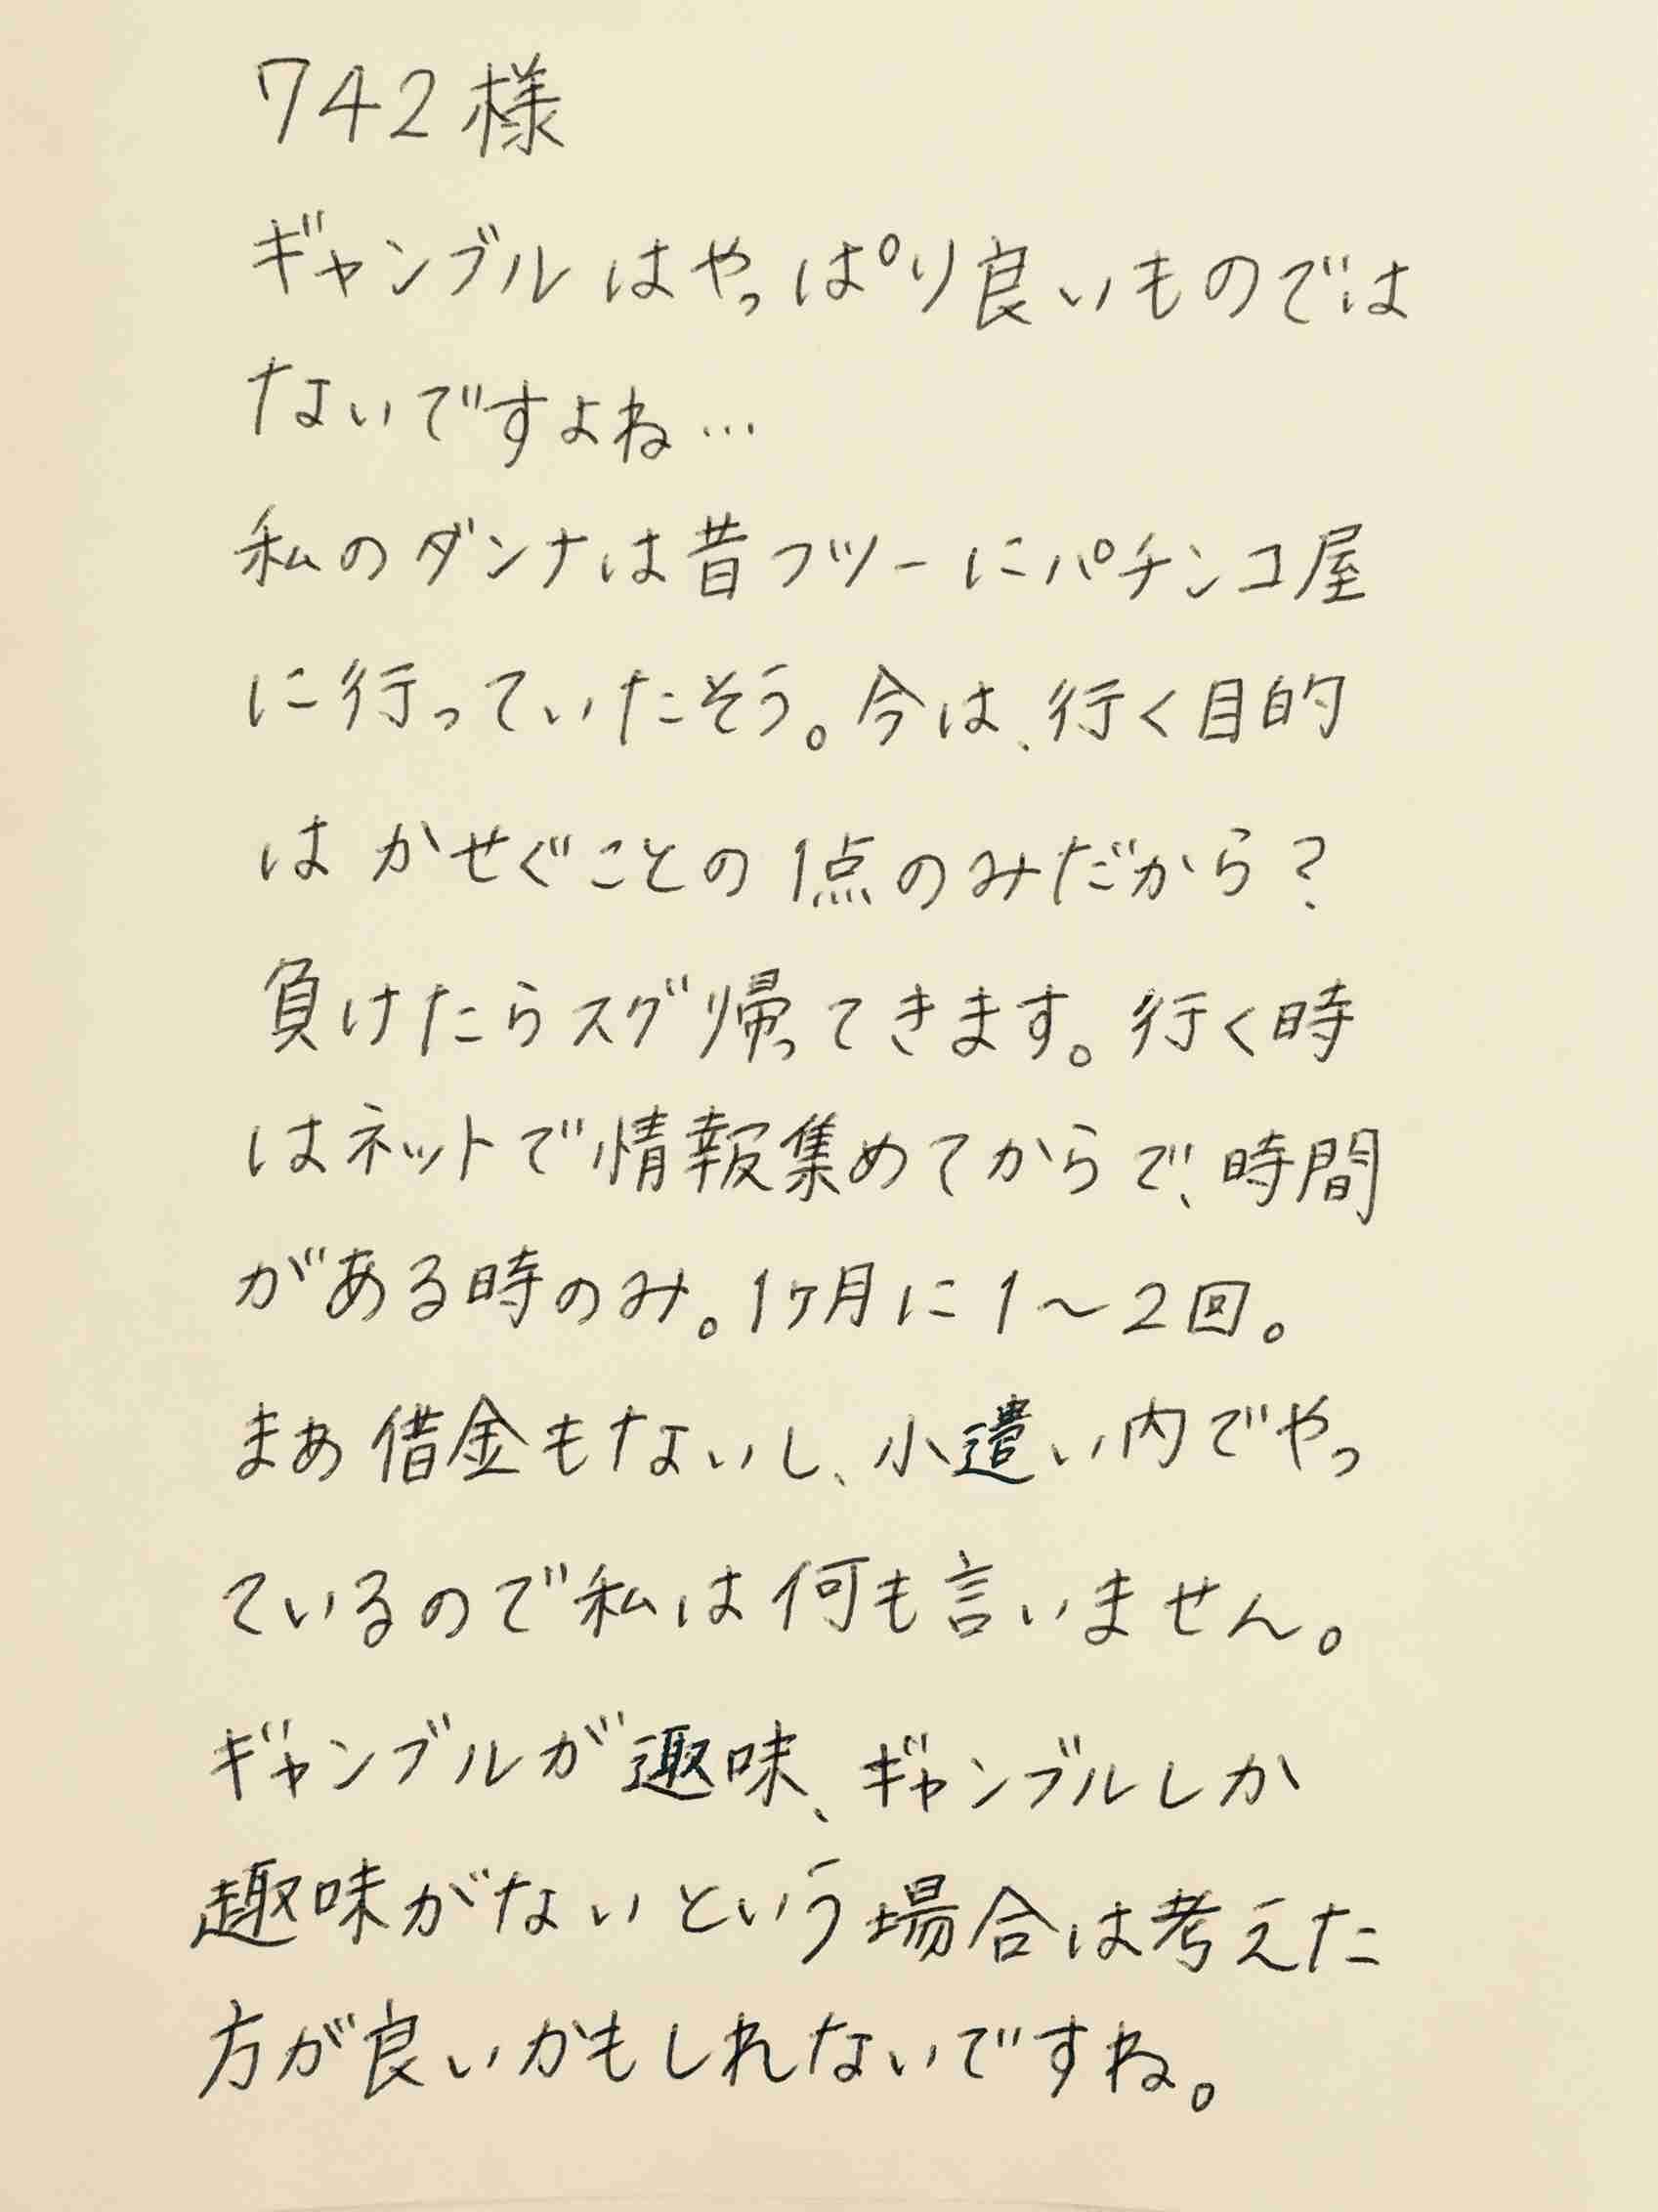 742様
ギャンブルはやっぱり良いものでは
ないですよね…
私のダンナは昔フツーにパチンコ屋
に行っていたそう。今は、行く目的
はかせぐことの1点のみだから?
負けたらスグ帰ってきます。行く時
はネットで情報集めてからで、時間
がある時のみ。1ヶ月に1〜2回。
まぁ借金もないし、小遣い内でやっ
ているので私は何も言いません。
ギャンブルが趣味、ギャンブルしか
趣味がないという場合は考えた
方が良いかもしれないですね。